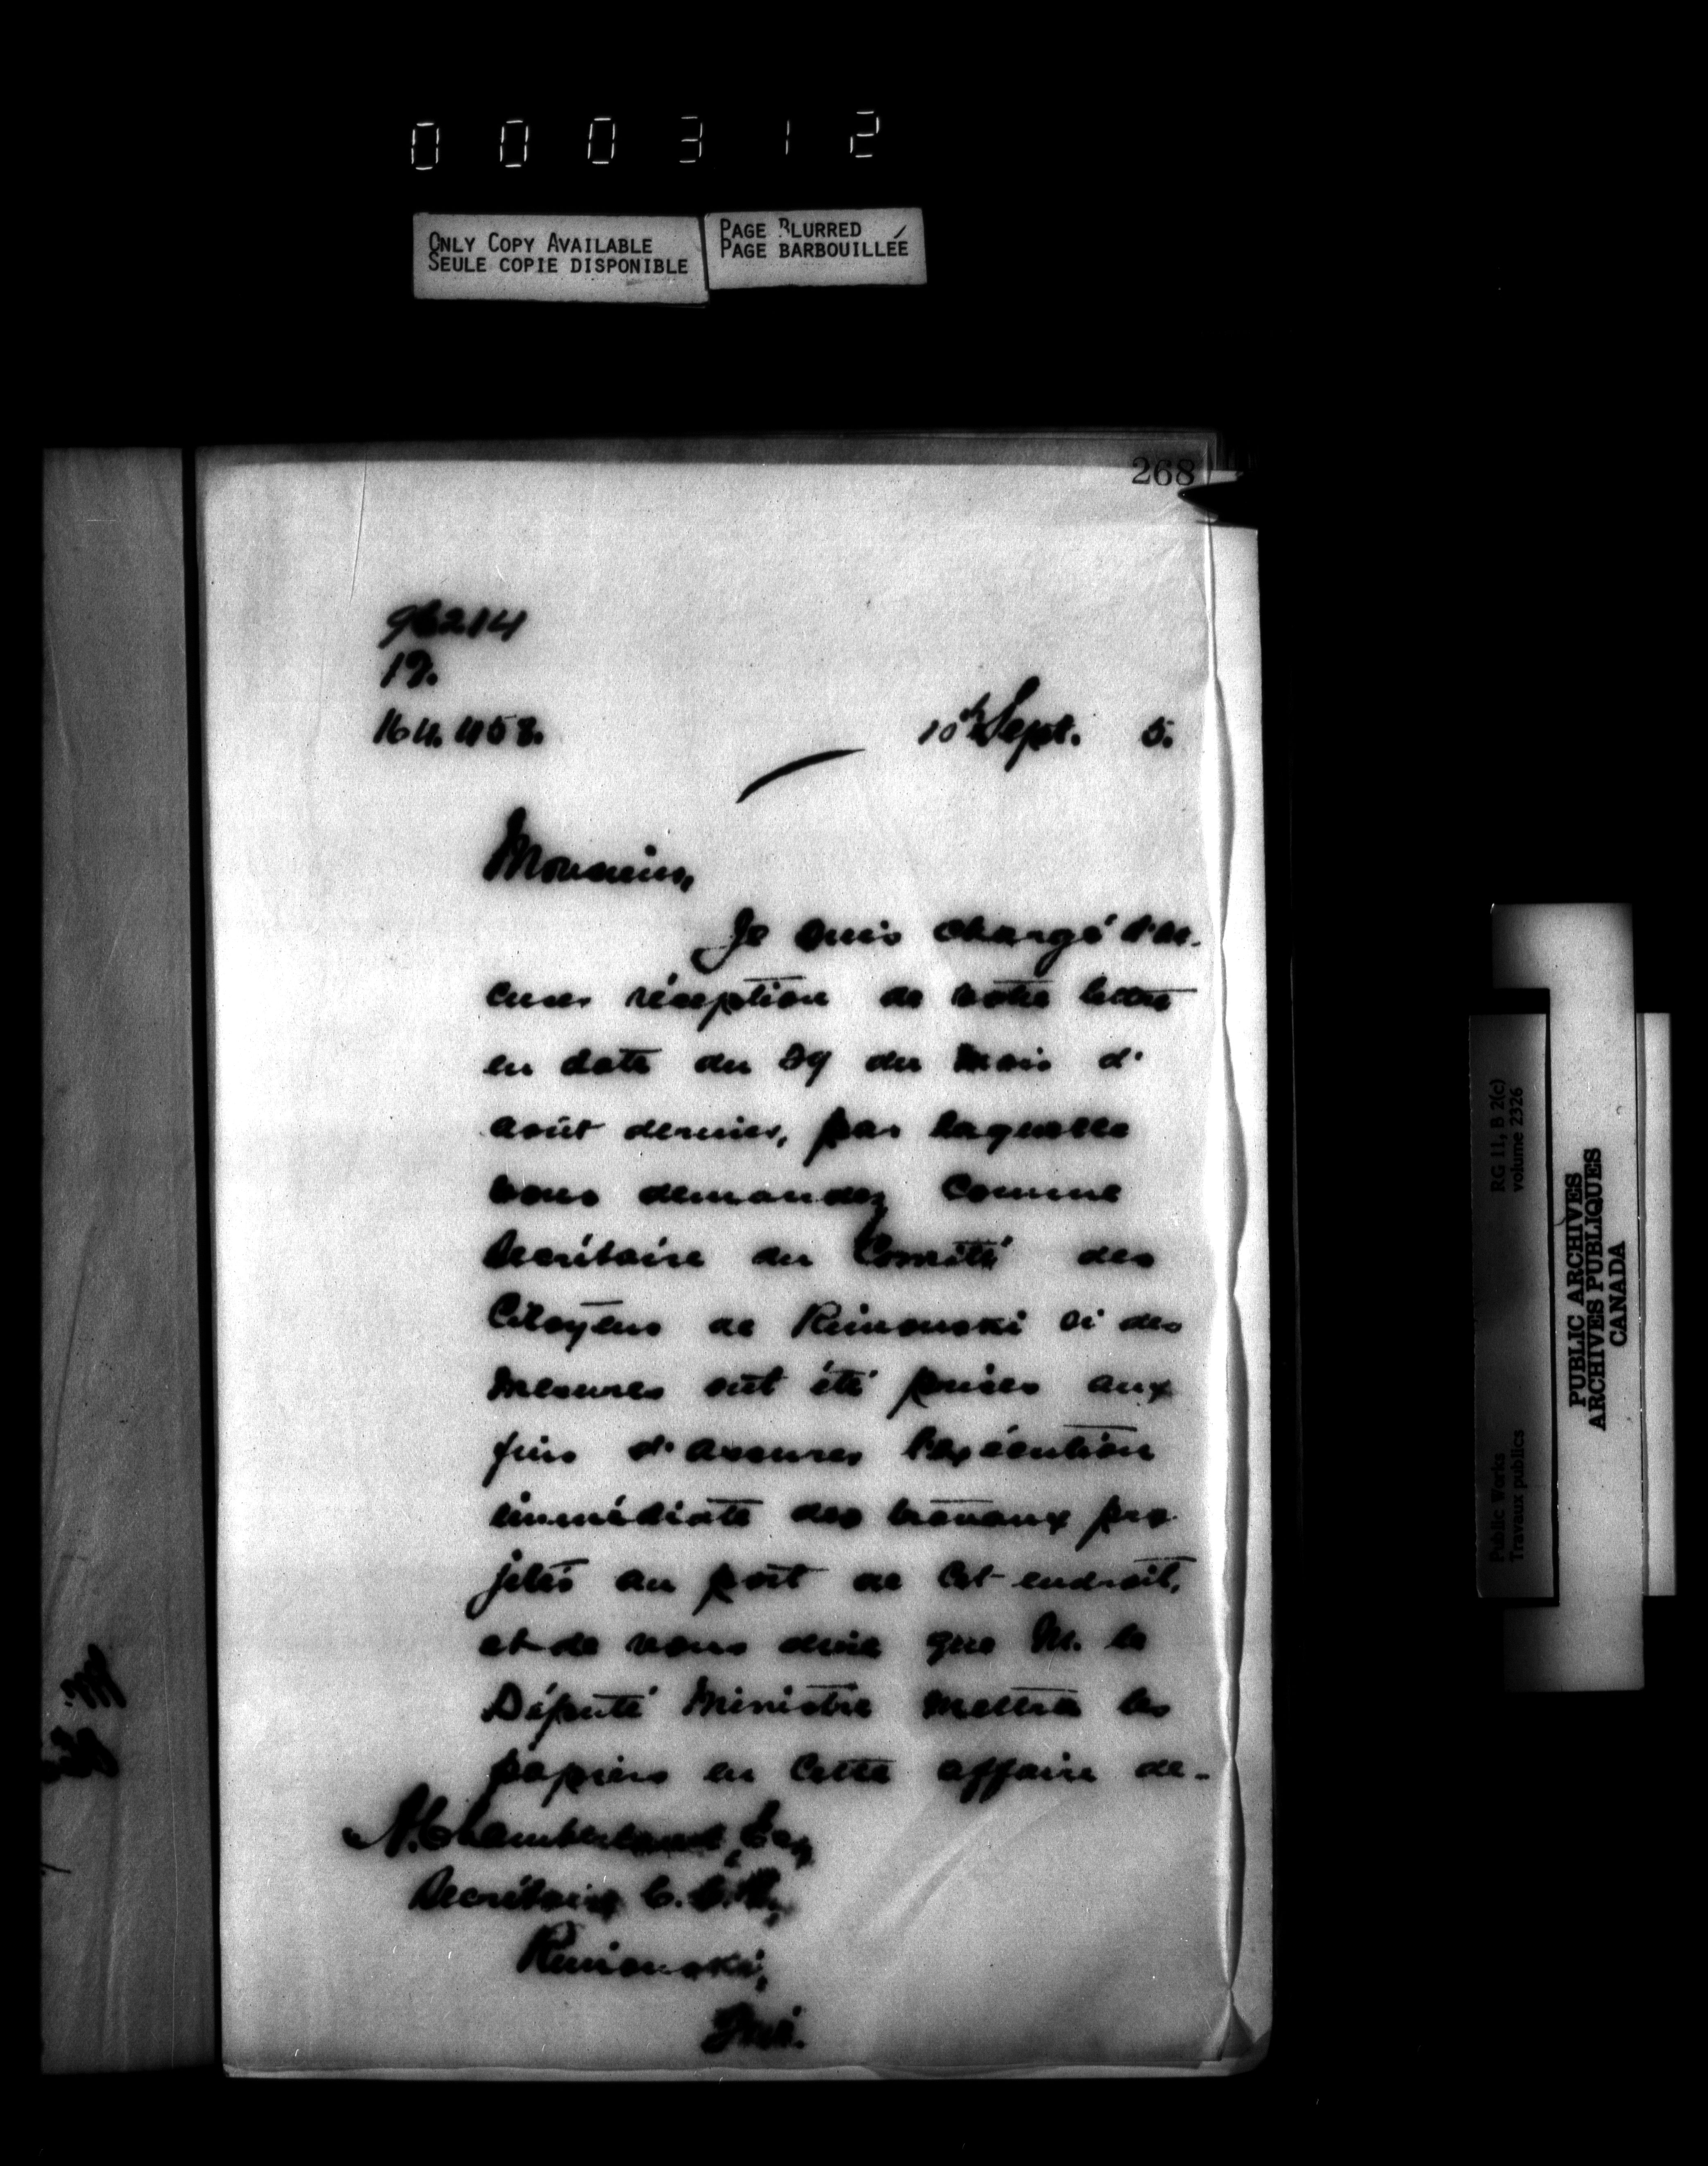 000312
ONLY COPY AVAILABLE
SEULE COPIE DISPONIBLE
PAGE BLURRED
PAGE BARBOUILLÉE
268
96214
19.
10th Sept. 5.
Monsieur,
Je suis chargé d'ac-
cuser réception de votre lettre
en date du 29 du mois d'
août dernier, par laquelle
vous demandez comme
Secrétaire du Comité des
Citoyens de Rimouski si des
mesures ont été prises aux
fins d'assurer l'exécution
immédiate des travaux pro-
jetés au port de cet endroit,
et de vous dire que M. le
Député Ministre mettra les
papiers en cette affaire de-
N. Chamberland, Esq
Secrétaire C.C.R.,
Rimouski,
Qué.
Public Works
Travaux publics
RG 11, B 2(c)
volume 2326
PUBLIC ARCHIVES
ARCHIVES PUBLIQUES
CANADA